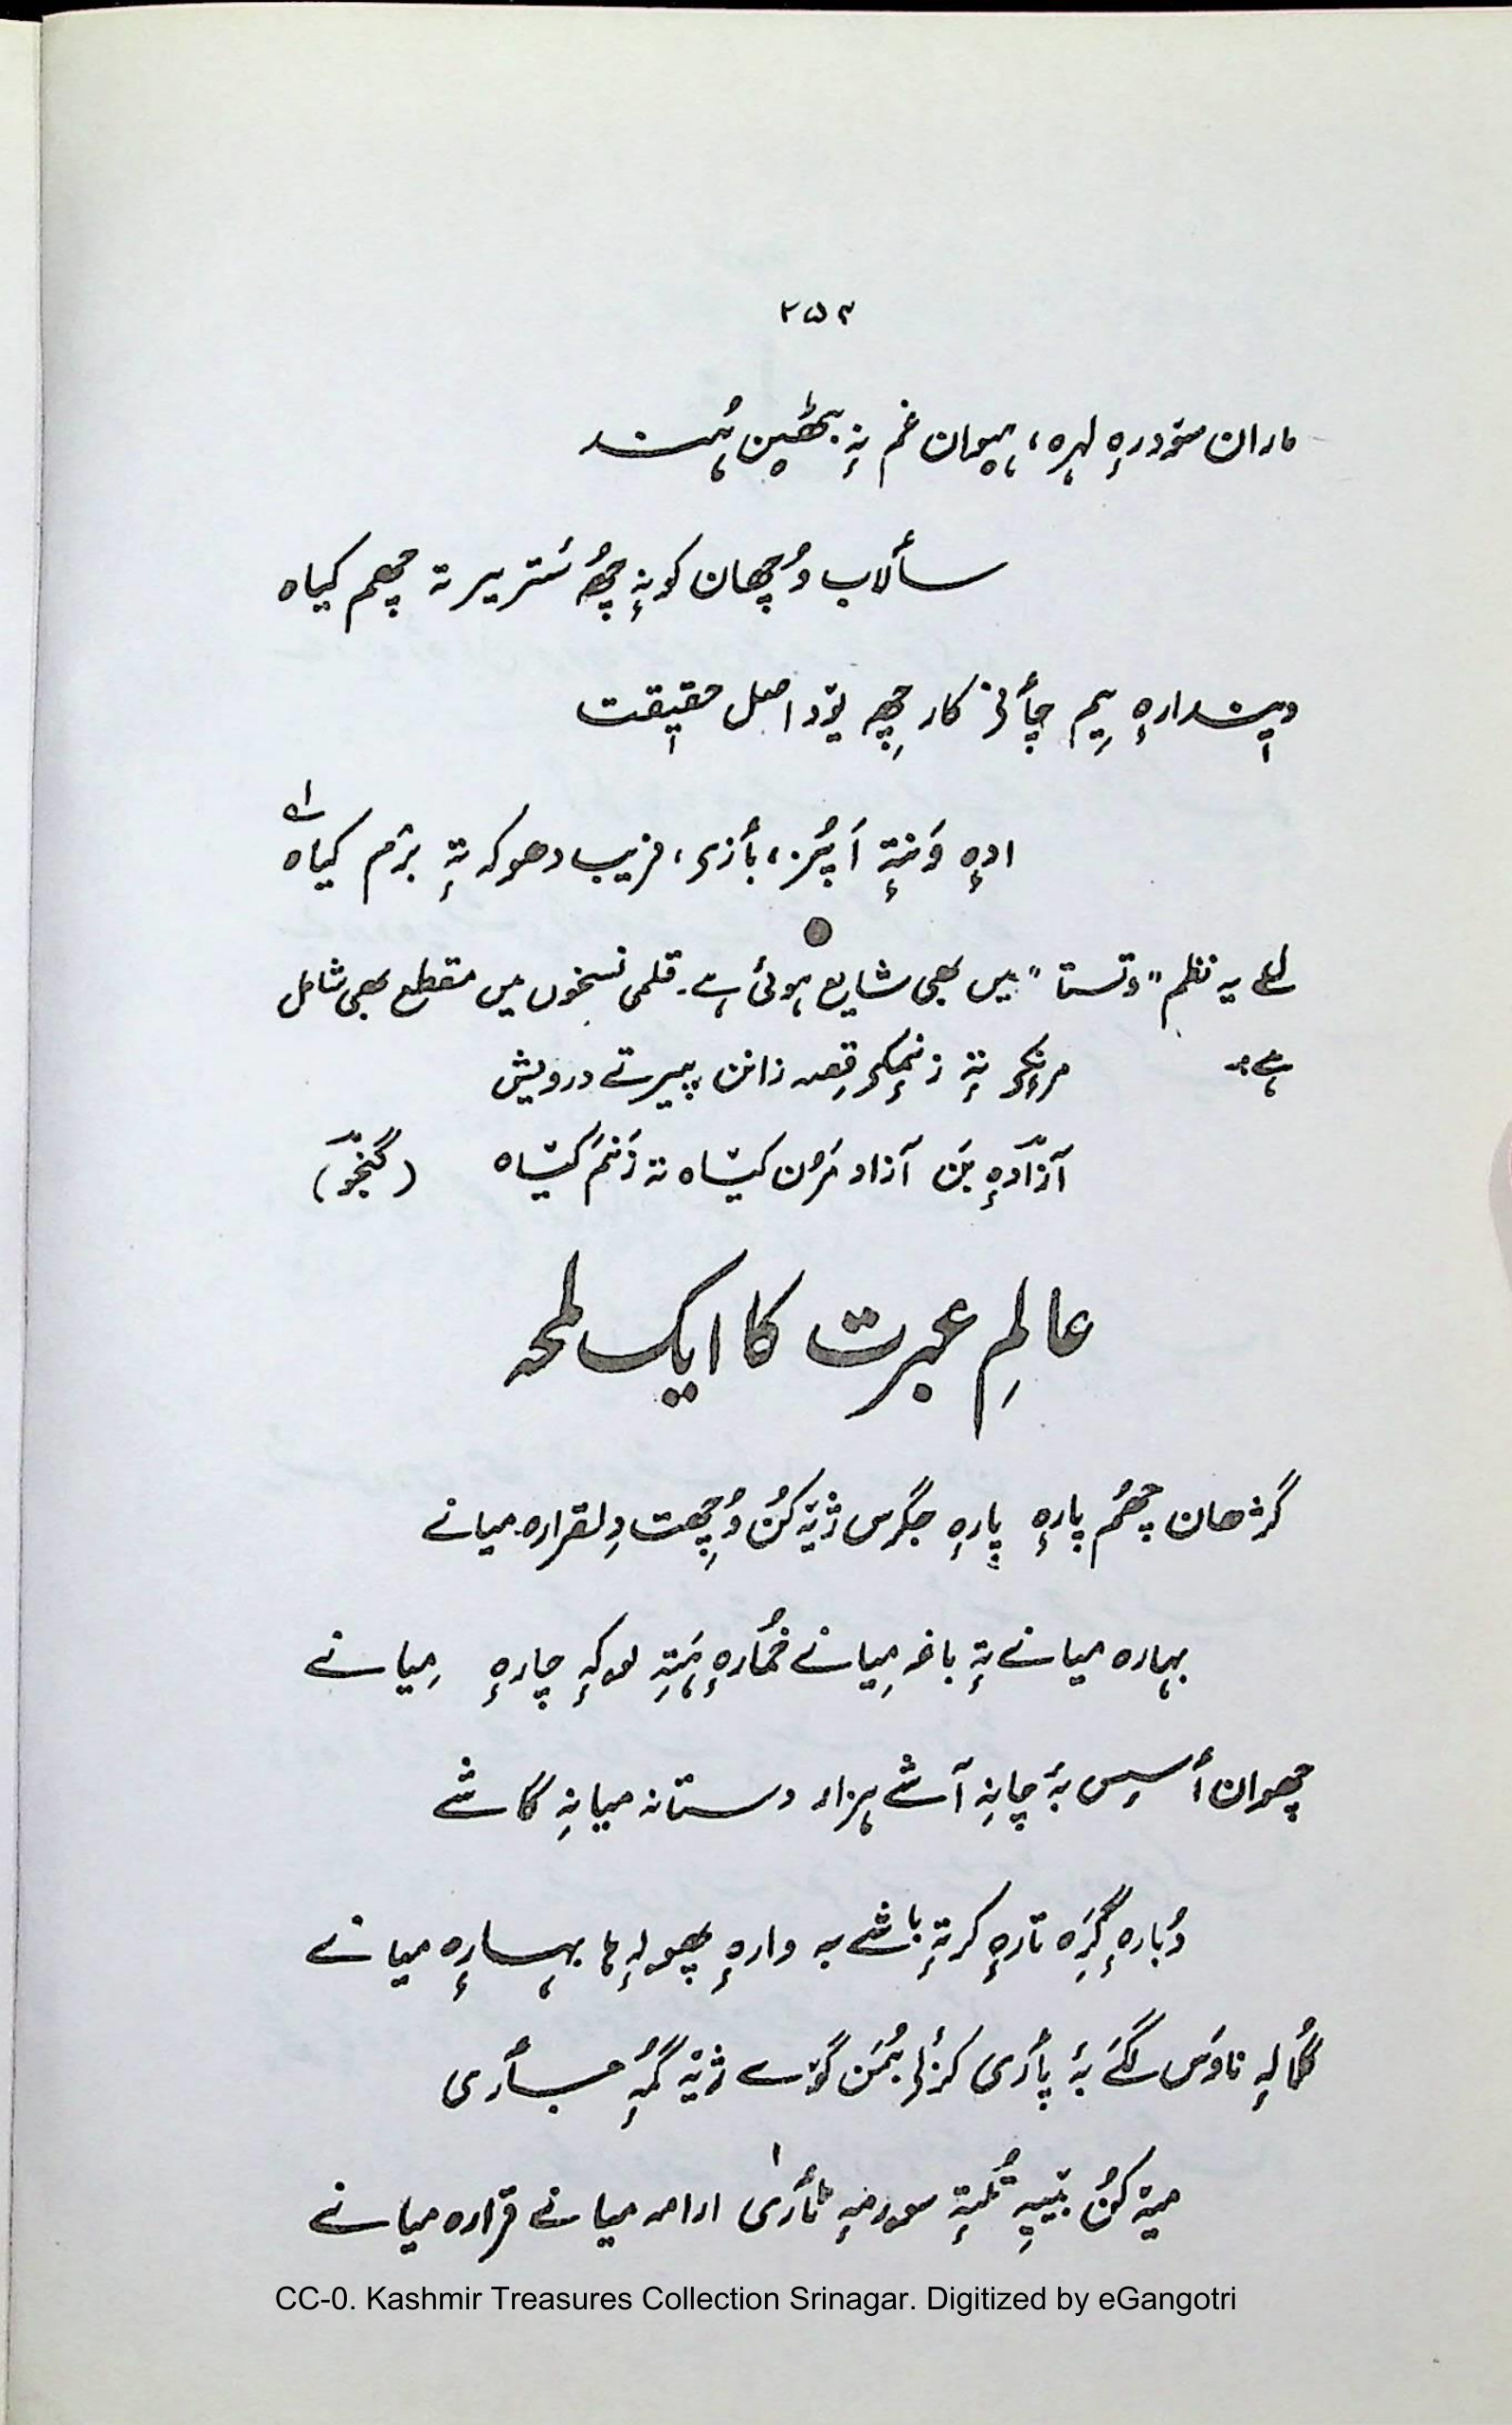 ۲۵۳
ماران سۆدرٕہ لہرہ، ہیوان غم نہٕ بٹھین ہُند
سٲلاب وُچھان کونہٕ چھُہ سُتریر تہ چھم کیاہ
دیندارٕہ یِم چأنی کار چھِہ یۆد اصل حقیقت
ادٕہ وَنتہٕ اَپُز، بٲزی، فریب دھوکہ تہٕ برٛم کیاہ
لے یہ نظم "وتستا" میں بھی شایع ہوئی ہے۔ قلمی نسخوں میں مقطع بھی شامل
ہے:۔ مرنکُو تہٕ زنمٕکُو قِصہ زانن پیرتے درویش
آزادٕہ بَن آزاد مَرُن کیّاہ تہ زَنمَ کیّاہ (گنجُو)
عالمِ عبرت کا ایک لمحہ
گژھان چھُم پارٕہ پارٕہ جگرس ژیٚہ کُن وُچھِت دِلقرارہ میانے
بہارہ میانے تہٕ باغہ مِیانے خمُارٕہ ہَتہِ لوکہٕ چارٕہ مِیانے
چھوان أسِس بہٕ چانہِ آشے ہزار دستانہ میانہِ گاشے
دُبارٕہ گَرِہ تارٕہ کرتہٕ باشے بہ وارٕہ پھولہٕ ہا بہارٕہ میانے
گُمالہٕ ناوَس لگَے بہٕ پٲری کرٛٲلی بُمَن گوٚے ژیٚہ گُمہٕ عبٲری
میٚہ کُن بیٚیہِ تُلتہٕ سورمہٕ ٹٲری ارامہ میانے قرارہ میانے
CC-0. Kashmir Treasures Collection Srinagar. Digitized by eGangotri